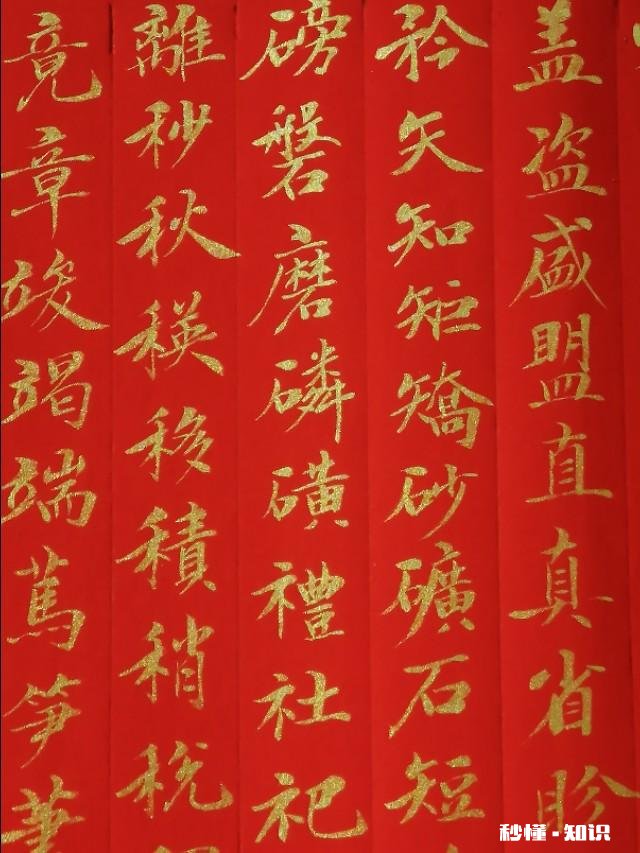 盖盗盛盟直真省盼
矜矢知矩矯砂礦石短
磅磐磨磷磺禮社祀
離秒秋移積稍税
竟章竣竭端篤筝
秒懂-知识